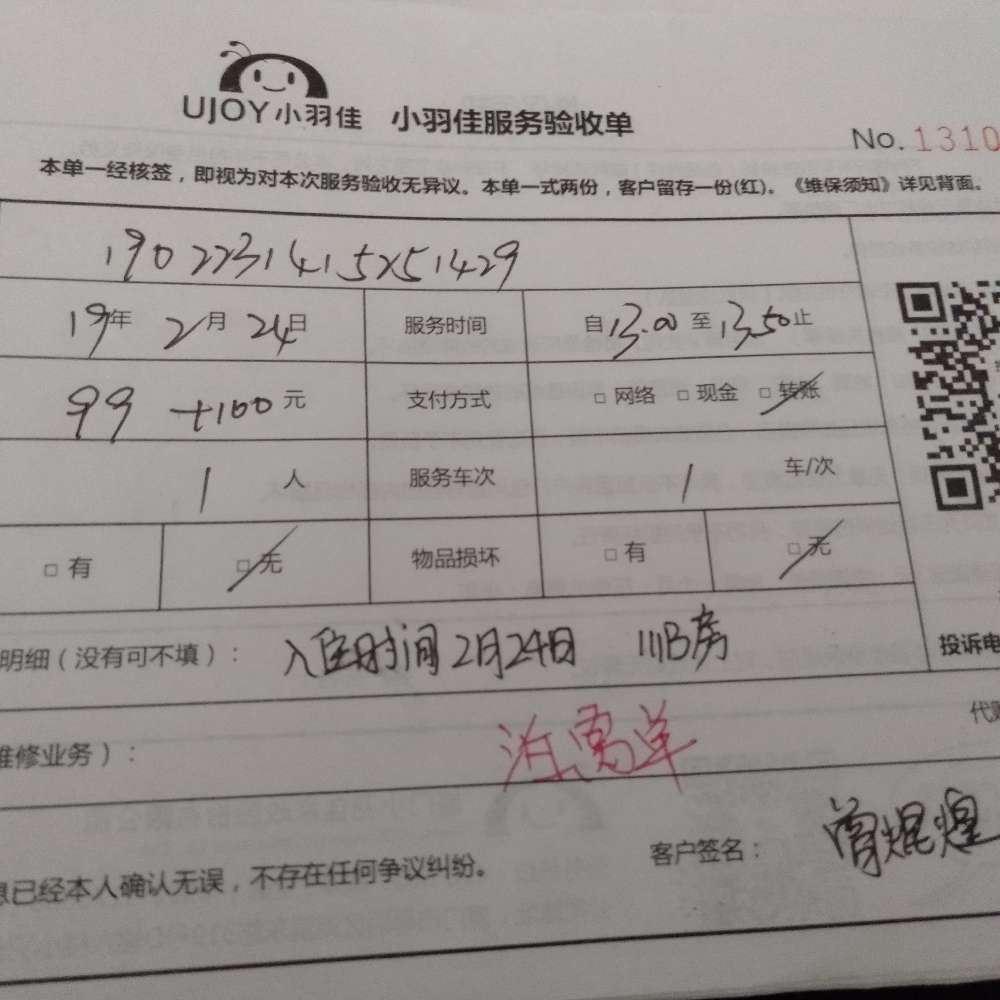 UJOY小羽佳 小羽佳服务验收单
No.1310
本单一经核签，即视为对本次服务验收无异议。本单一式两份，客户留存一份(红)。《维保须知》详见背面。
1902231415251429
19年 2月 24日 服务时间 自13.00至13.50止
99 +100元 支付方式 □网络 □现金 □转账
1 人 服务车次 1 车/次
□有 □无 物品损坏 □有 □无
明细（没有可不填）： 入住时间2月24日 111B房
投诉电
维修业务）：
代购
息已经本人确认无误，不存在任何争议纠纷。
客户签名：曾焜煌